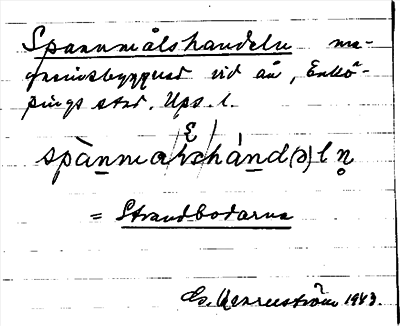 Spannmålshandeln ma-
gasinsbyggnad vid ån, Enkö-
pings stad. Ups. l.
spànmaḷshánd(ə)l n̥
= Strandbodarna
1943.